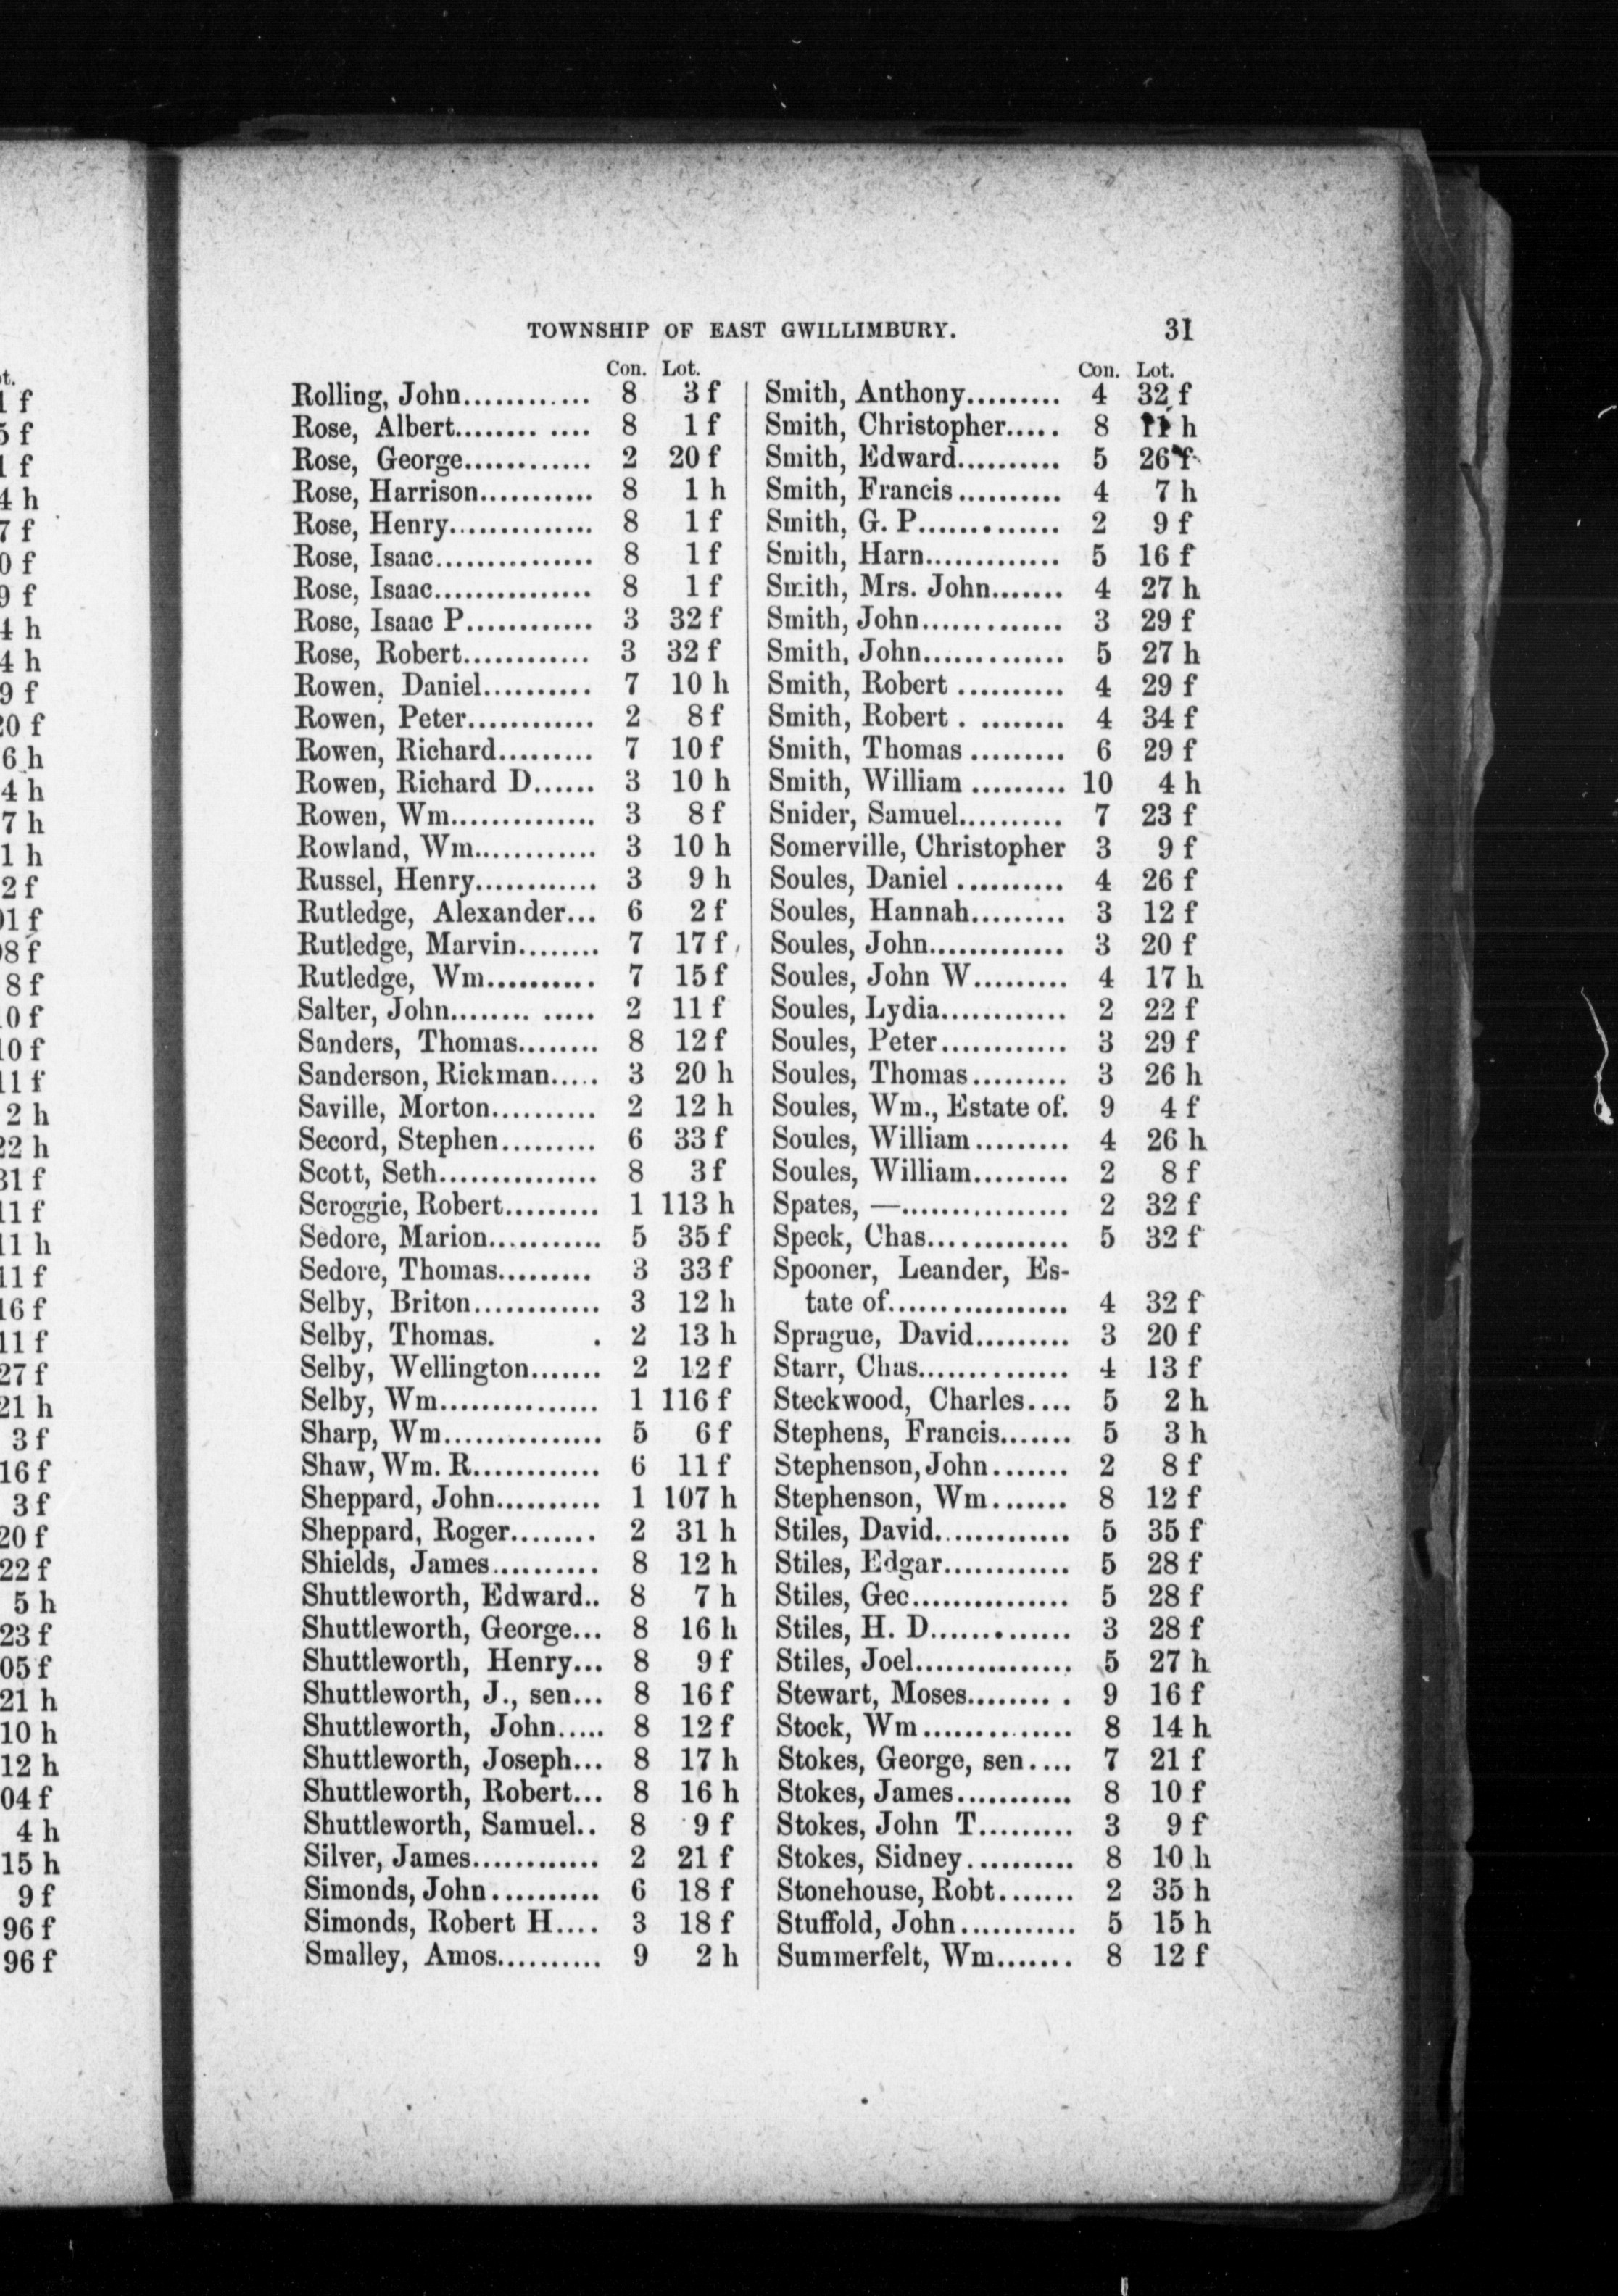 TOWNSHIP OF EAST GWILLIMBURY. 31
Con. Lot.
Rolling, John............ 8 3 f
Rose, Albert........ .... 8 1 f
Rose, George............ 2 20 f
Rose, Harrison........... 8 1 h
Rose, Henry.............. 8 1 f
Rose, Isaac............... 8 1 f
Rose, Isaac............... 8 1 f
Rose, Isaac P............ 3 32 f
Rose, Robert............ 3 32 f
Rowen, Daniel.......... 7 10 h
Rowen, Peter............ 2 8 f
Rowen, Richard......... 7 10 f
Rowen, Richard D...... 3 10 h
Rowen, Wm.............. 3 8 f
Rowland, Wm............ 3 10 h
Russel, Henry............ 3 9 h
Rutledge, Alexander... 6 2 f
Rutledge, Marvin........ 7 17 f
Rutledge, Wm.......... 7 15 f
Salter, John........ ..... 2 11 f
Sanders, Thomas........ 8 12 f
Sanderson, Rickman..... 3 20 h
Saville, Morton.......... 2 12 h
Secord, Stephen......... 6 33 f
Scott, Seth............... 8 3 f
Scroggie, Robert......... 1 113 h
Sedore, Marion........... 5 35 f
Sedore, Thomas......... 3 33 f
Selby, Briton............ 3 12 h
Selby, Thomas. . 2 13 h
Selby, Wellington....... 2 12 f
Selby, Wm............... 1 116 f
Sharp, Wm............... 5 6 f
Shaw, Wm. R............ 6 11 f
Sheppard, John.......... 1 107 h
Sheppard, Roger........ 2 31 h
Shields, James.......... 8 12 h
Shuttleworth, Edward.. 8 7 h
Shuttleworth, George... 8 16 h
Shuttleworth, Henry... 8 9 f
Shuttleworth, J., sen... 8 16 f
Shuttleworth, John..... 8 12 f
Shuttleworth, Joseph... 8 17 h
Shuttleworth, Robert... 8 16 h
Shuttleworth, Samuel.. 8 9 f
Silver, James............ 2 21 f
Simonds, John.......... 6 18 f
Simonds, Robert H.... 3 18 f
Smalley, Amos.......... 9 2 h
Con. Lot.
Smith, Anthony......... 4 32 f
Smith, Christopher..... 8 11 h
Smith, Edward.......... 5 26 f
Smith, Francis.......... 4 7 h
Smith, G. P.............. 2 9 f
Smith, Harn............. 5 16 f
Smith, Mrs. John....... 4 27 h
Smith, John............. 3 29 f
Smith, John............. 5 27 h
Smith, Robert .......... 4 29 f
Smith, Robert . ........ 4 34 f
Smith, Thomas ......... 6 29 f
Smith, William ......... 10 4 h
Snider, Samuel.......... 7 23 f
Somerville, Christopher 3 9 f
Soules, Daniel .......... 4 26 f
Soules, Hannah......... 3 12 f
Soules, John............. 3 20 f
Soules, John W......... 4 17 h
Soules, Lydia............ 2 22 f
Soules, Peter............ 3 29 f
Soules, Thomas......... 3 26 h
Soules, Wm., Estate of. 9 4 f
Soules, William......... 4 26 h
Soules, William......... 2 8 f
Spates, —................ 2 32 f
Speck, Chas............. 5 32 f
Spooner, Leander, Es-
tate of................. 4 32 f
Sprague, David......... 3 20 f
Starr, Chas.............. 4 13 f
Steckwood, Charles.... 5 2 h
Stephens, Francis....... 5 3 h
Stephenson, John....... 2 8 f
Stephenson, Wm....... 8 12 f
Stiles, David............. 5 35 f
Stiles, Edgar............ 5 28 f
Stiles, Geo............... 5 28 f
Stiles, H. D............. 3 28 f
Stiles, Joel............... 5 27 h
Stewart, Moses........ . 9 16 f
Stock, Wm.............. 8 14 h
Stokes, George, sen.... 7 21 f
Stokes, James........... 8 10 f
Stokes, John T......... 3 9 f
Stokes, Sidney.......... 8 10 h
Stonehouse, Robt....... 2 35 h
Stuffold, John........... 5 15 h
Summerfelt, Wm....... 8 12 f